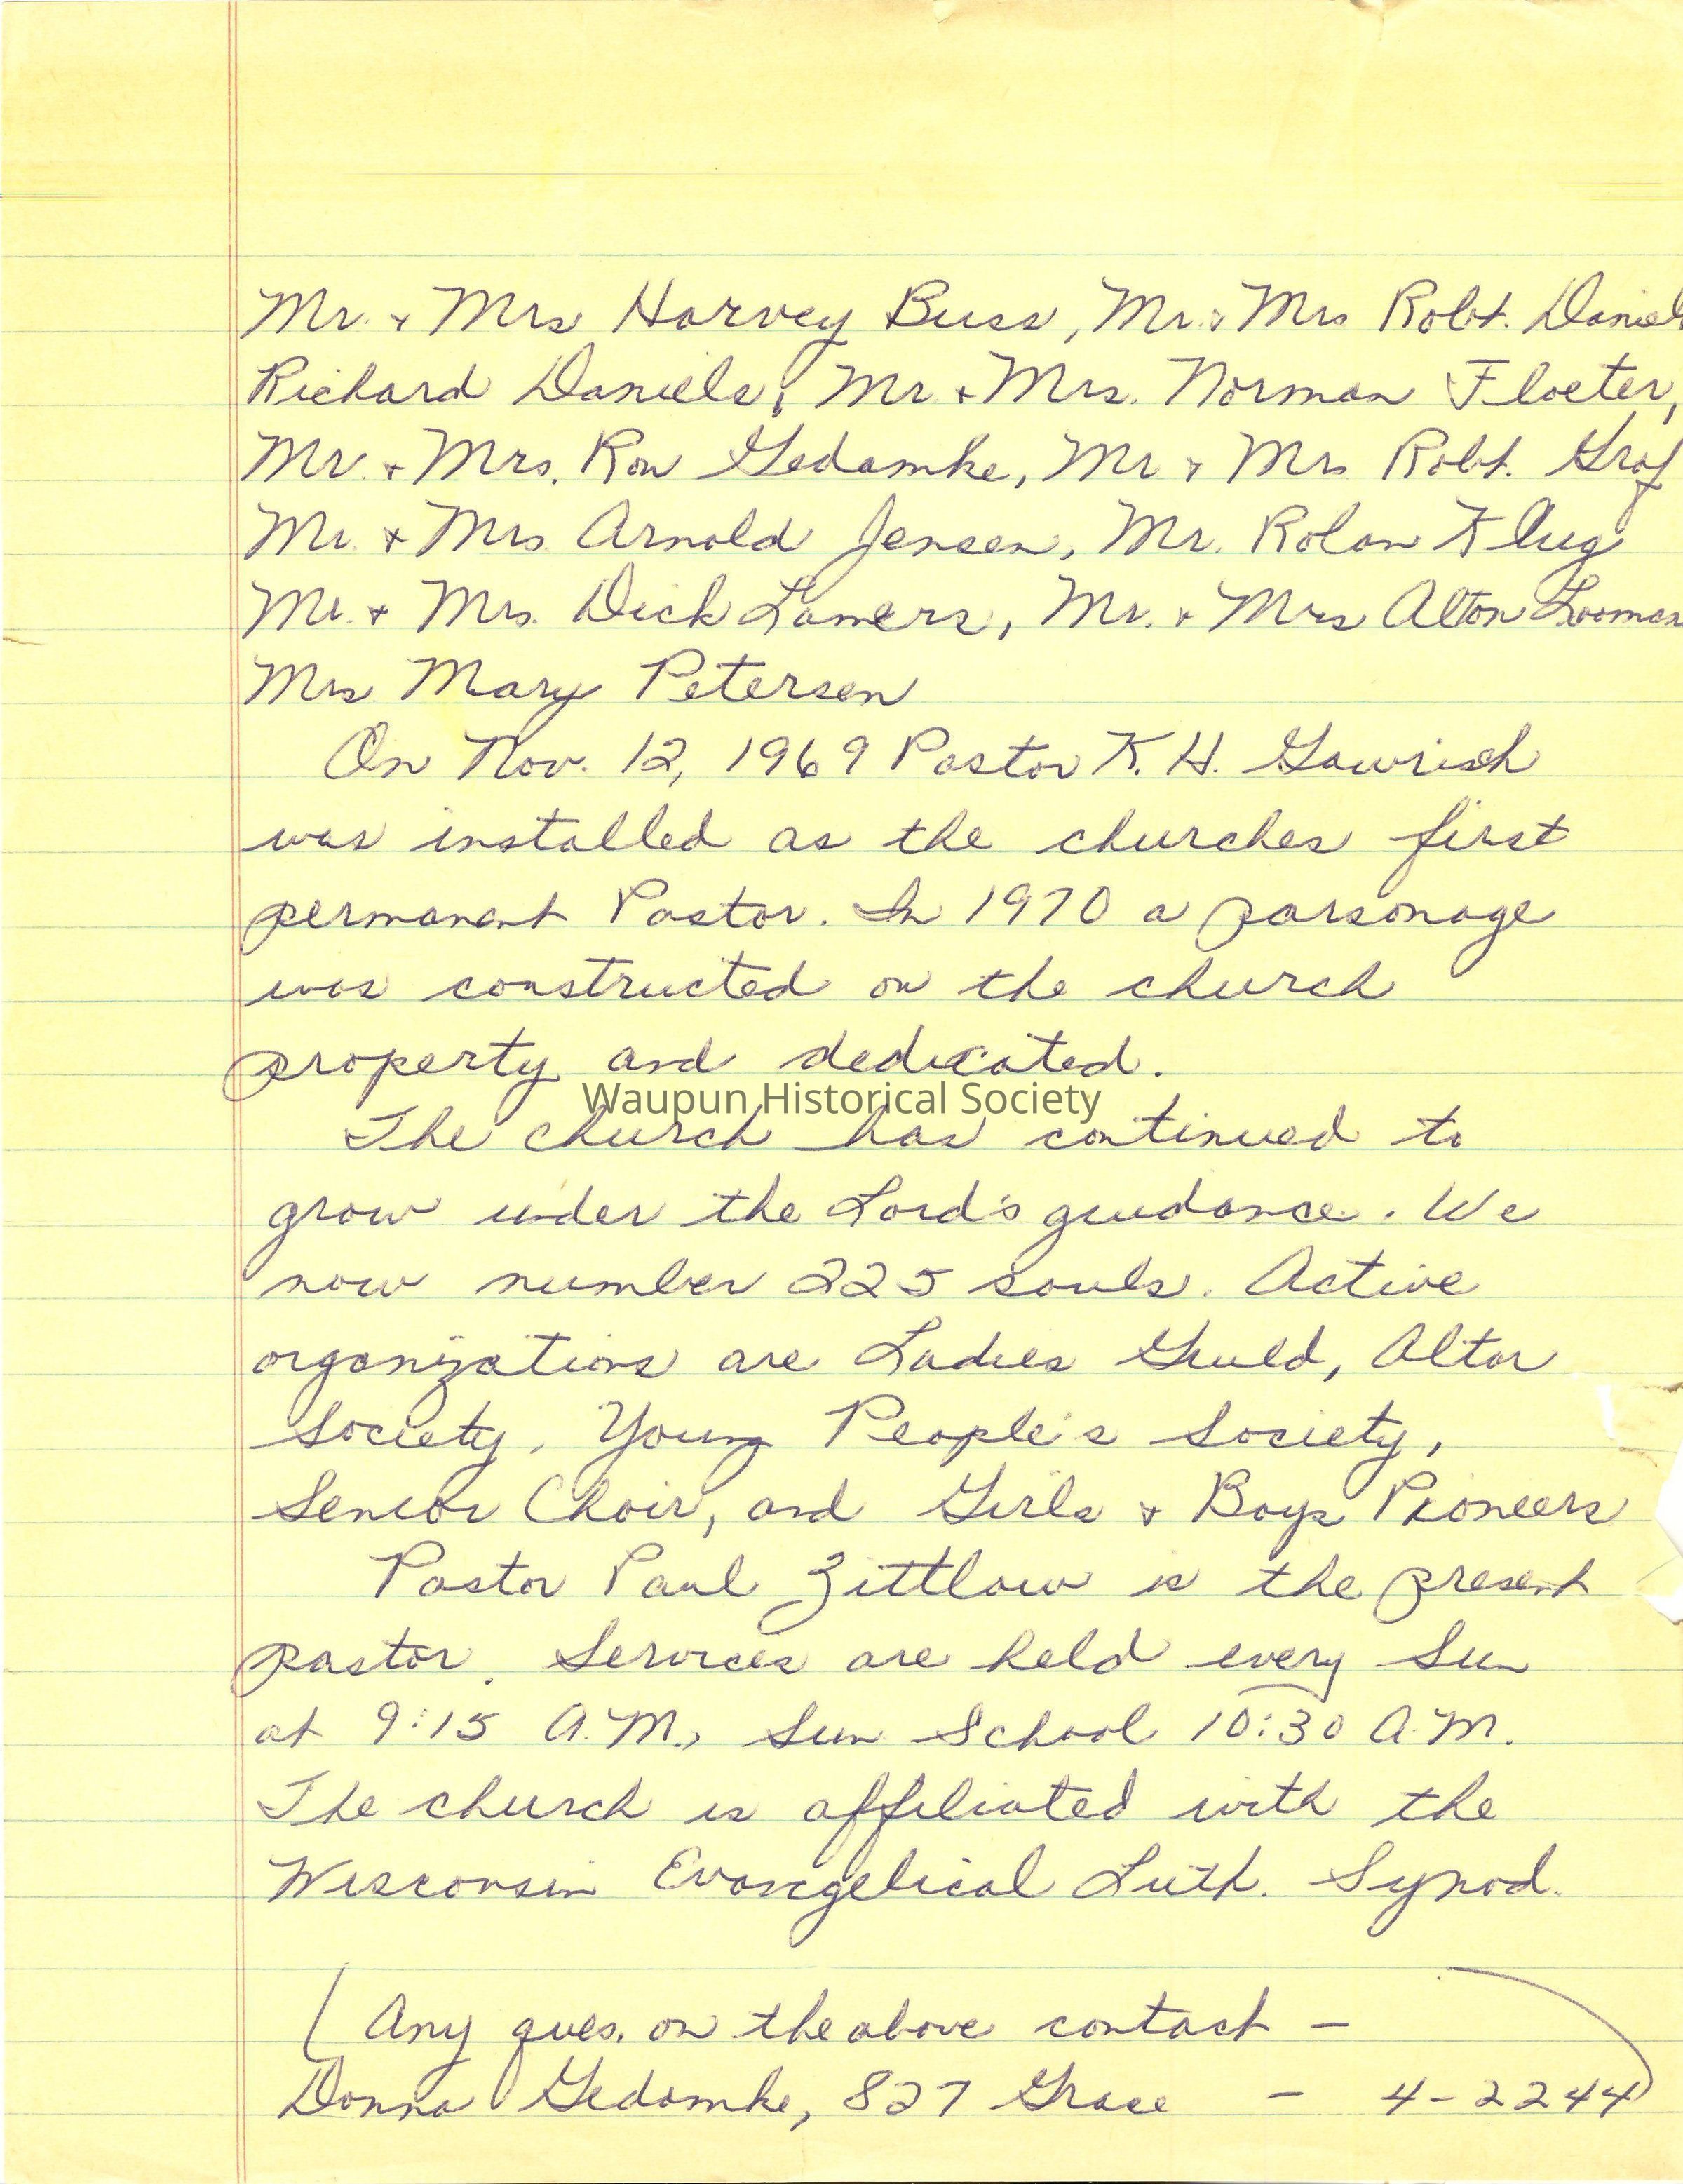 Mr. + Mrs Harvey Buss, Mr. + Mrs Robt. Daniels
Richard Daniels, Mr + Mrs. Norman Floeter,
Mr. + Mrs. Ron Gedamke, Mr + Mrs Robt. Graf
Mr. + Mrs Arnold Jensen, Mr. Rolan Klug
Mr. + Mrs. Dick Lamers, Mr. + Mrs Alton Looman
Mrs Mary Petersen
On Nov. 12, 1969 Pastor K. H. Gawrisch
was installed as the churches first
permanent Pastor. In 1970 a parsonage
was constructed on the church
property and dedicated.
Waupun Historical Society
The church has continued to
grow under the Lord's guidance. We
now number 225 souls. Active
organizations are Ladies Guild, Altar
Society, Young People's Society,
Senior Choir, and Girls + Boys Pioneers
Pastor Paul Zittlow is the present
pastor. Services are held every Sun
at 9:15 A.M., Sun School 10:30 A.M.
The church is affiliated with the
Wisconsin Evangelical Luth. Synod.
(Any ques. on the above contact -
Donna Gedamke, 827 Grace - 4-2244)